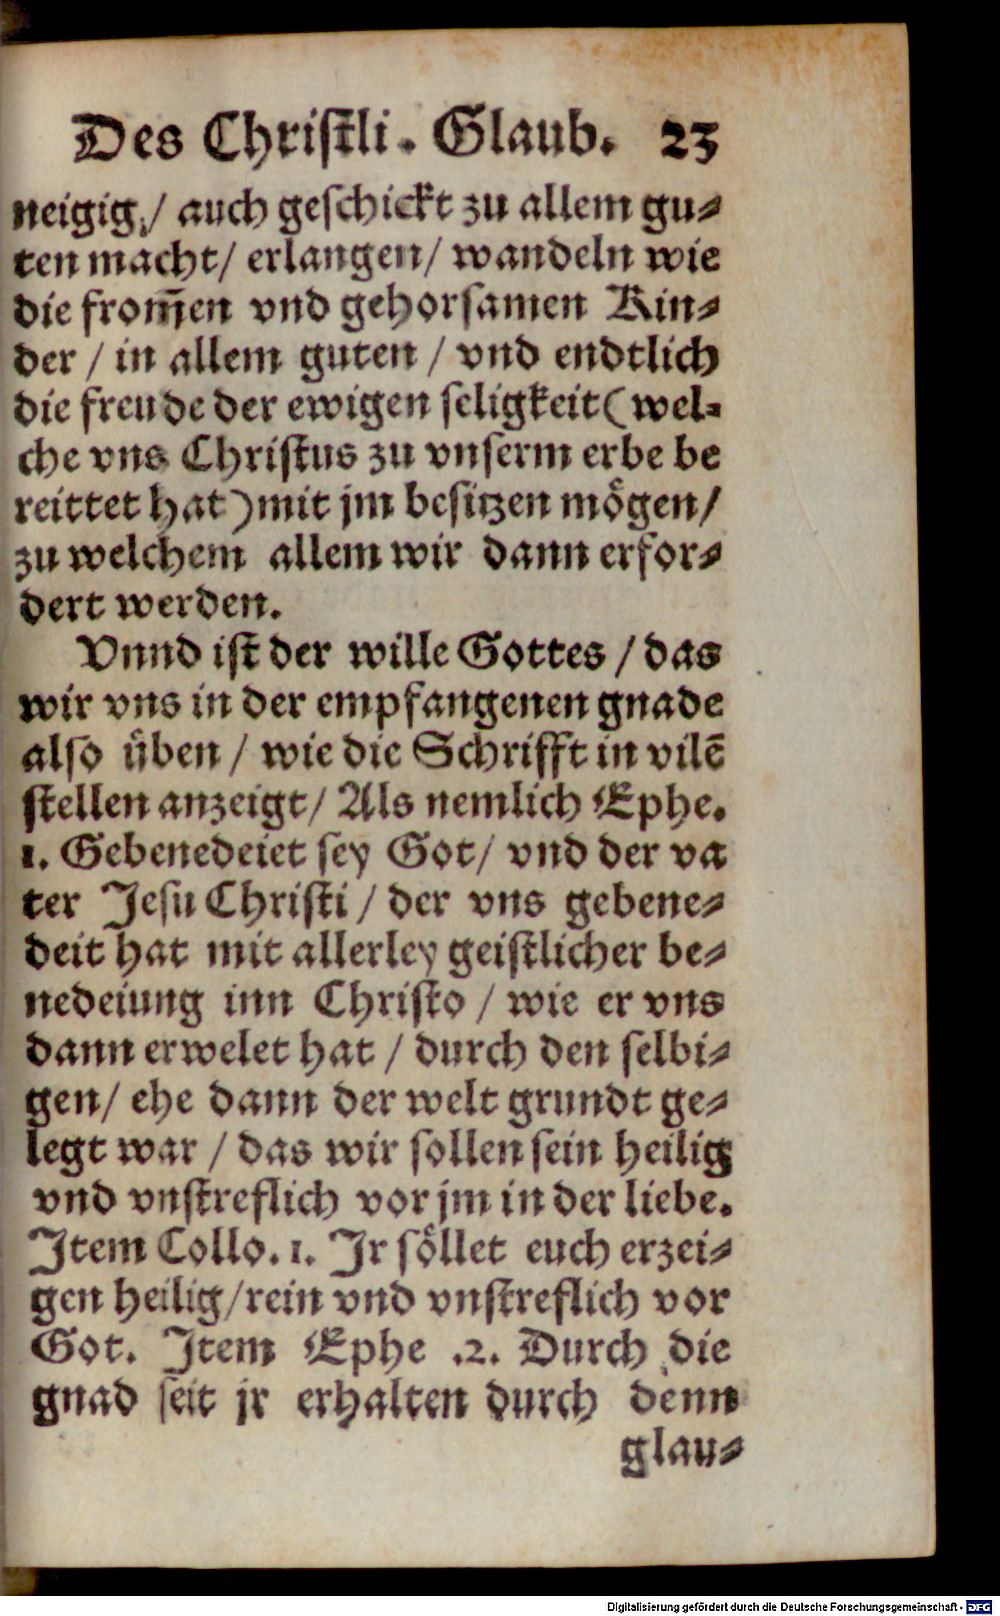 Des Christli. Glaub. 23
neigig / auch geschickt zu allem gu⸗
ten macht / erlangen / wandeln wie
die from̃en vnd gehorsamen Kin⸗
der / in allem guten / vnd endtlich
die freude der ewigen seligkeit (wel⸗
che vns Christus zu vnserm erbe be
reittet hat) mit jm besitzen mögen /
zu welchem allem wir dann erfor⸗
dert werden.
Vnnd ist der wille Gottes / das
wir vns in der empfangenen gnade
also üben / wie die Schrifft in vilē
stellen anzeigt / Als nemlich Ephe.
1. Gebenedeiet sey Got / vnd der va
ter Jesu Christi / der vns gebene⸗
deit hat mit allerley geistlicher be⸗
nedeiung inn Christo / wie er vns
dann erwelet hat / durch den selbi⸗
gen / ehe dann der welt grundt ge⸗
legt war / das wir sollen sein heilig
vnd vnstreflich vor jm in der liebe.
Item Collo. 1. Ir söllet euch erzei⸗
gen heilig / rein vnd vnstreflich vor
Got. Item Ephe .2. Durch die
gnad seit jr erhalten durch denn
glau⸗
Digitalisierung gefördert durch die Deutsche Forschungsgemeinschaft - DFG